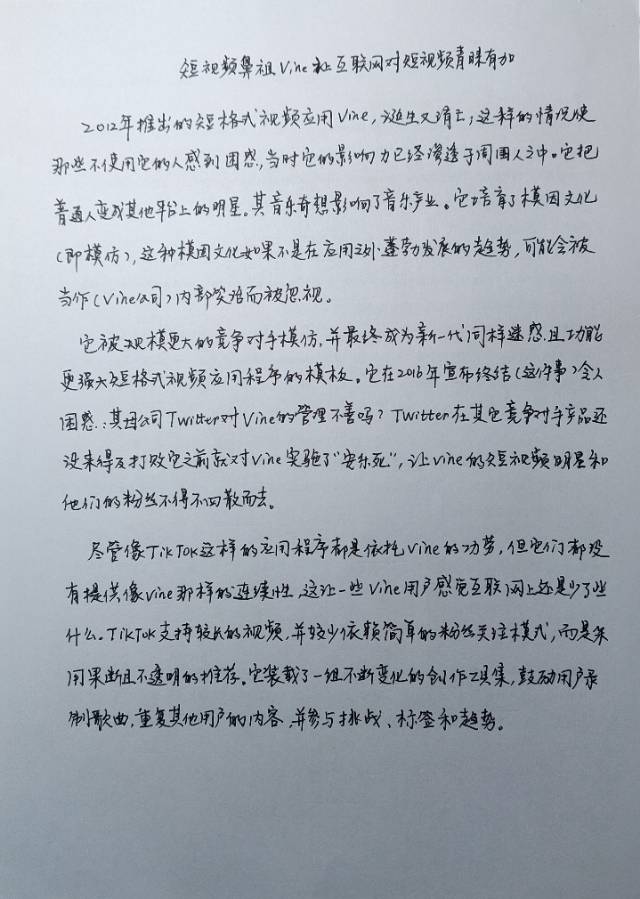 短视频鼻祖Vine让互联网对短视频青睐有加
2012年推出的短格式视频应用Vine,诞生又消亡,这样的情况使
那些不使用它的人感到困惑,当时它的影响力已经渗透于周围人之中。它把
普通人变成其他平台上的明星。其音乐奇想影响了音乐产业。它培育了模因文化
(即模仿),这种模因文化如果不是在应用之外蓬勃发展的趋势,可能会被
当作(Vine公司)内部笑话而被忽视。
它被规模更大的竞争对手模仿,并最终成为新一代同样迷惑且功能
更强大短格式视频应用程序的模板。它在2016年宣布终结(这件事)令人
困惑:其母公司Twitter对Vine的管理不善吗?Twitter在其它竞争对手产品还
没来得及打败它之前就对Vine实施了“安乐死”,让vine的短视频明星和
他们的粉丝不得不四散而去。
尽管像TikTok这样的应用程序都是依托vine的功劳,但它们都没
有提供像vine那样的连续性,这让一些Vine用户感觉互联网上还是少了些
什么。TikTok支持较长的视频,并较少依赖简单的粉丝关注模式,而是采
用果断且不透明的推荐。它装载了一组不断变化的创作工具集,鼓励用户录
制歌曲,重复其他用户的内容,并参与挑战、标签和趋势。